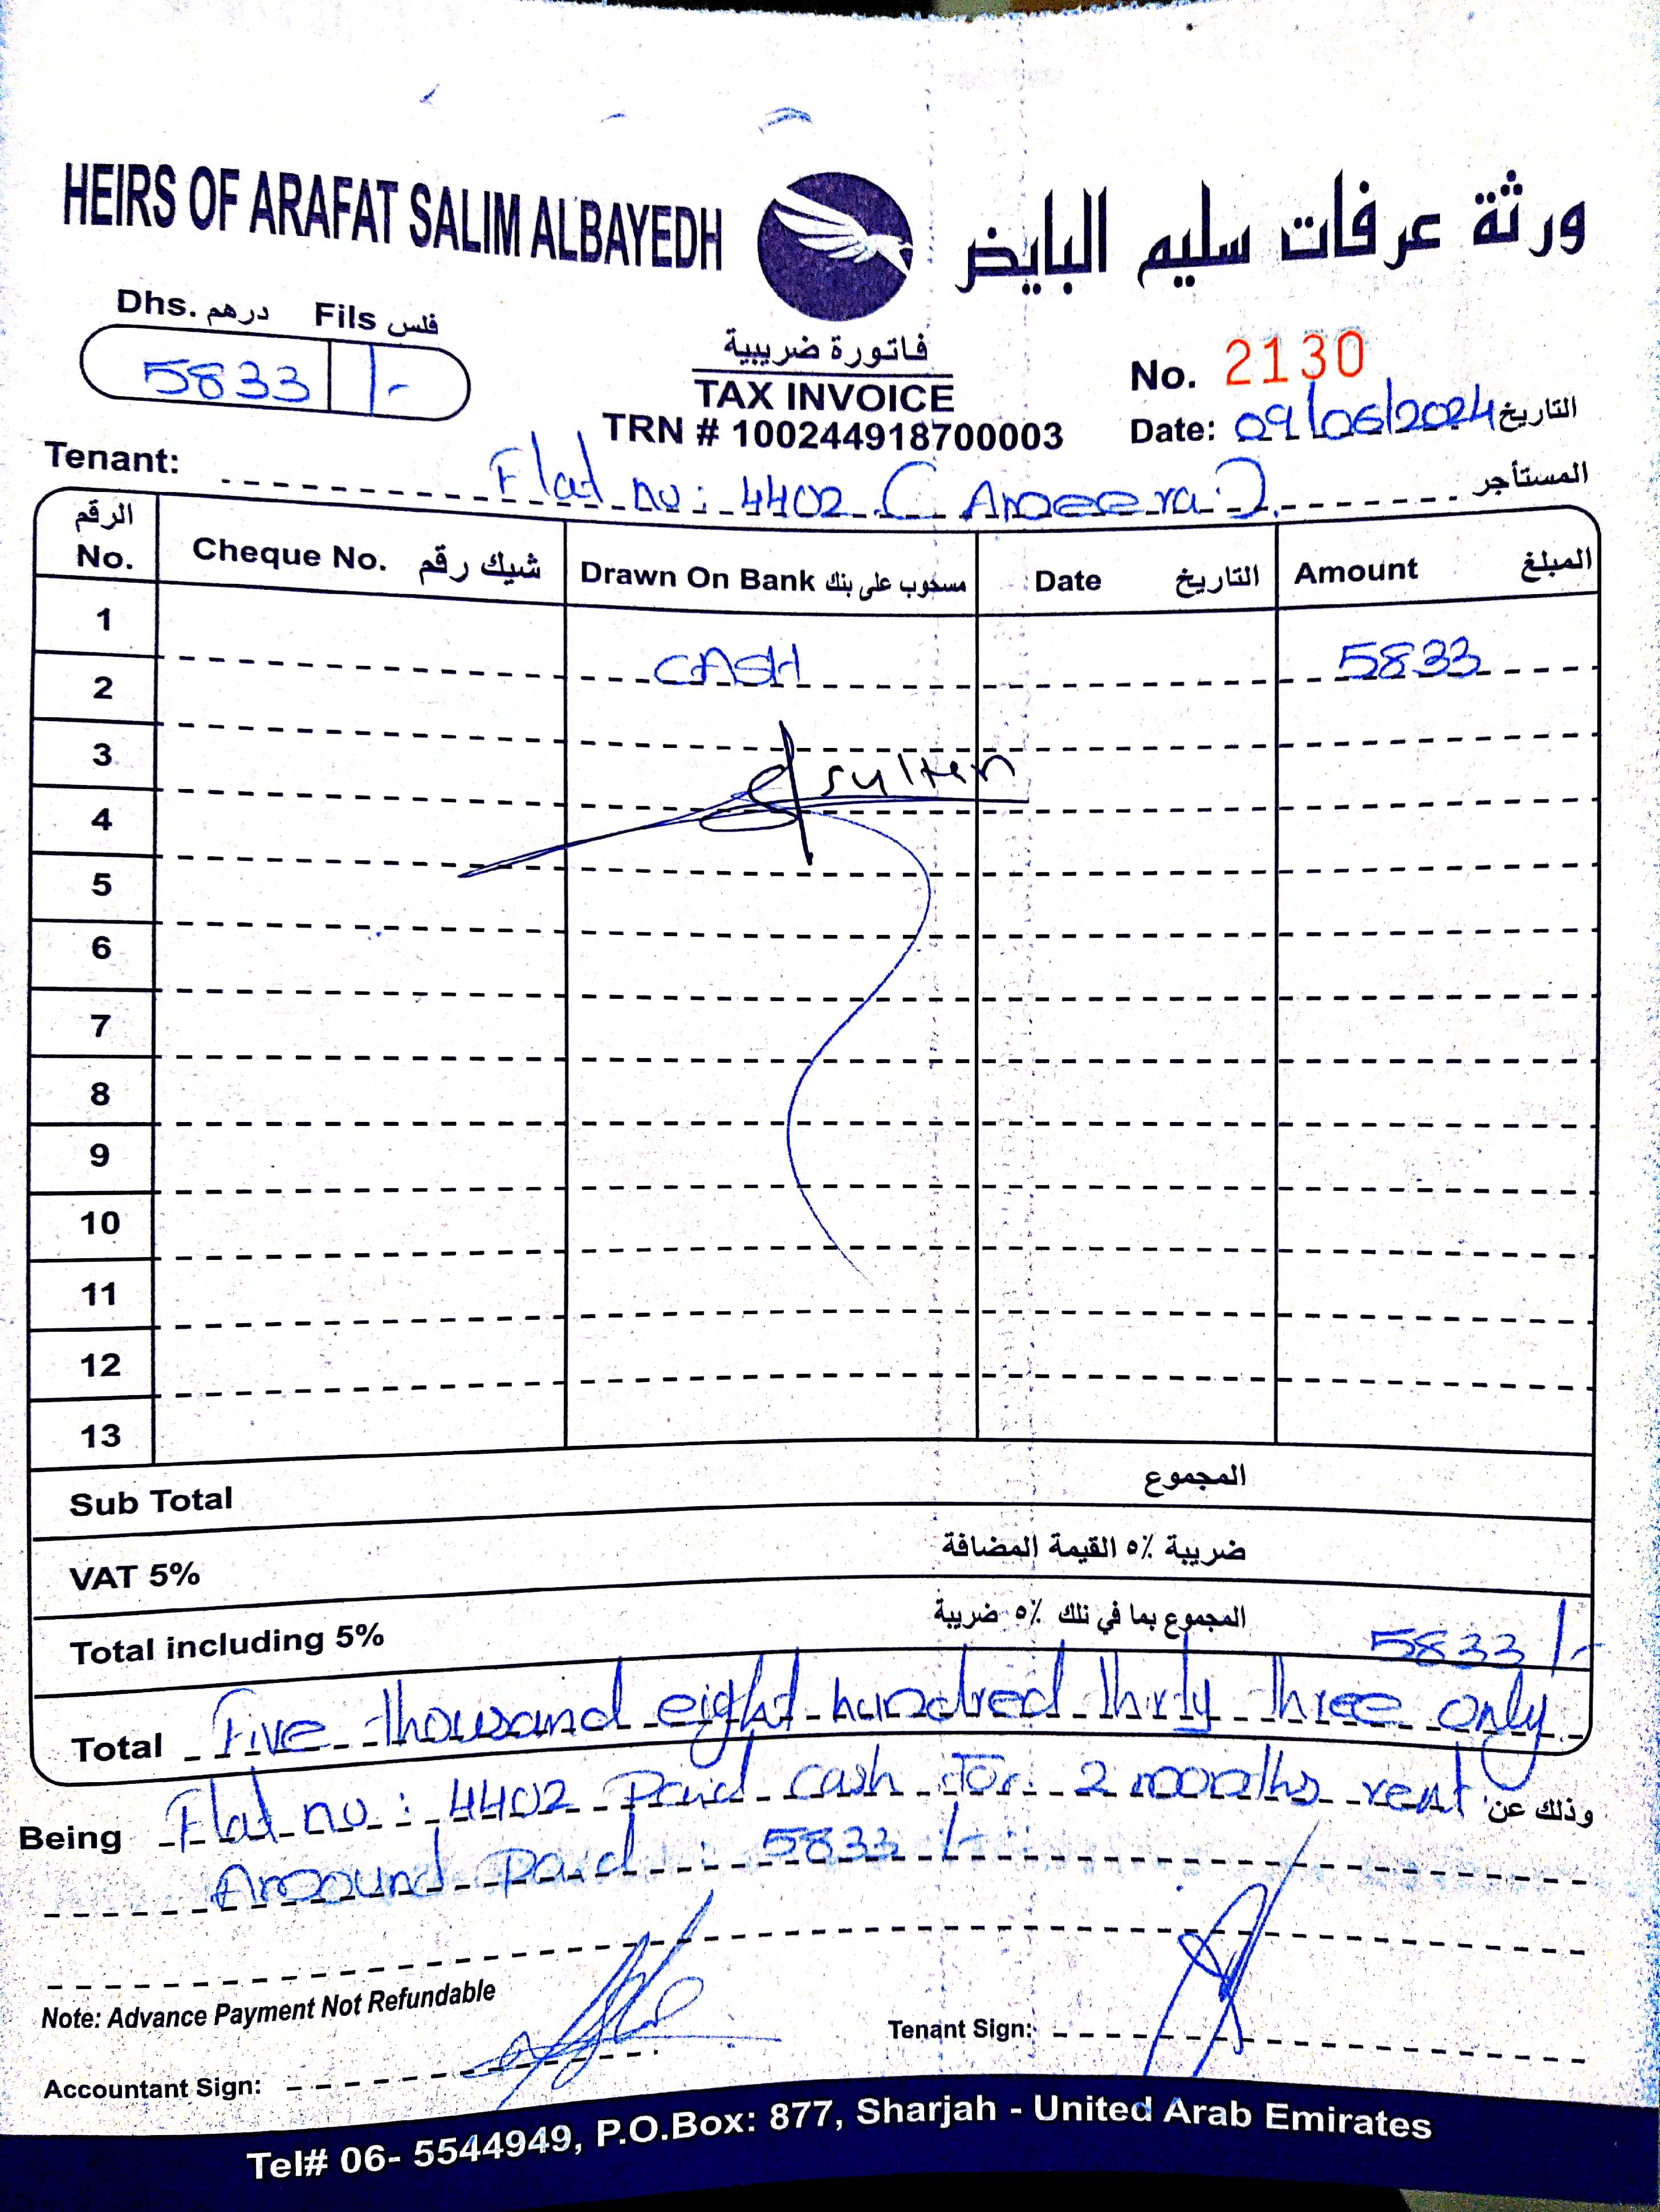 HEIRS OF ARAFAT SALIM ALBAYEDH
ورثة عرفات سليم البايض
Dhs. درهم Fils فلس
5833 /-
فاتورة ضريبية
TAX INVOICE
TRN # 100244918700003
No. 2130
Date: 09/06/2024 التاريخ
Tenant: Flat no: 4402 (Ameera) المستأجر
الرقم No. Cheque No. شيك رقم Drawn On Bank مسحوب على بنك Date التاريخ Amount المبلغ
1
CASH 5833
2
3
sultan
4
5
6
7
8
9
10
11
12
13
Sub Total المجموع
VAT 5% ضريبة ٥٪ القيمة المضافة
Total including 5% المجموع بما في ذلك ٥٪ ضريبة 5833 /-
Total Five thousand eight hundred thirty three only
Being Flat no: 4402 Paid cash for 2 months rent وذلك عن
Amound paid : 5833 /-
Note: Advance Payment Not Refundable
Accountant Sign:
Tenant Sign:
Tel# 06- 5544949, P.O.Box: 877, Sharjah - United Arab Emirates